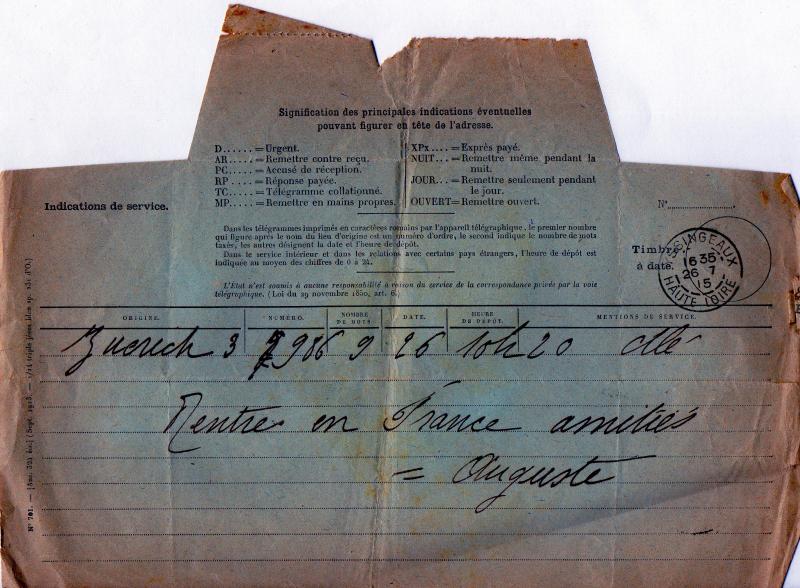 Signification des principales indications éventuelles
pouvant figurer en tête de l'adresse.
D......=Urgent.
AR.....=Remettre contre reçu.
PC.....=Accusé de réception.
RP.....=Réponse payée.
TC.....=Télégramme collationné.
MP.....=Remettre en mains propres.
XPx....=Exprès payé.
NUIT...=Remettre même pendant la
nuit.
JOUR...=Remettre seulement pendant
le jour.
OUVERT=Remettre ouvert.
Indications de service.
N°
Timbre
à date.
SSINGEAUX
16 35
26 7
15
HAUTE LOIRE
Dans les télégrammes imprimés en caractères romains par l'appareil télégraphique, le premier nombre
qui figure après le nom du lieu d'origine est un numéro d'ordre, le second indique le nombre de mots
taxés, les autres désignent la date et l'heure de dépôt.
Dans le service intérieur et dans les relations avec certains pays étrangers, l'heure de dépôt est
indiquée au moyen des chiffres de 0 à 24.
L'État n'est soumis à aucune responsabilité à raison du service de la correspondance privée par la voie
télégraphique. (Loi du 29 novembre 1850, art. 6.)
ORIGINE. NUMÉRO. NOMBRE DE MOTS DATE. HEURE DE DÉPÔT. MENTIONS DE SERVICE.
Zuerich 3 986 9 26 10h20
Rentre en France amitiés
= Auguste
N° 701.